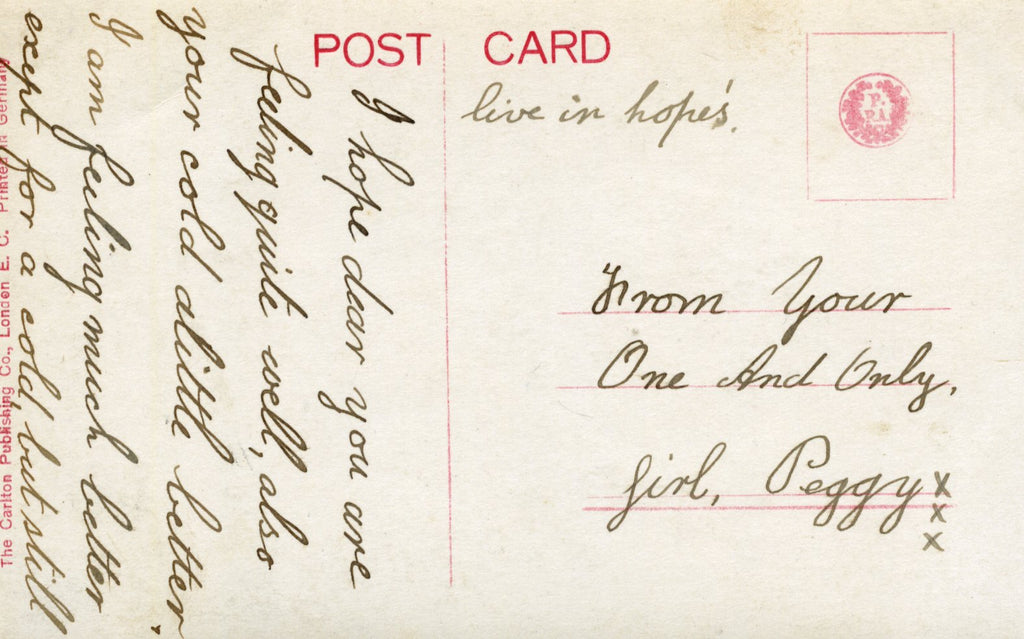 POST CARD
I hope dear you are
feeling quite well, also
your cold alittle better.
I am feeling much better
exept for a cold, but still
live in hope's.
From Your
One And Only,
girl, Peggy
x
x
x
The Carlton Publishing Co., London E. C. Printed in Germany